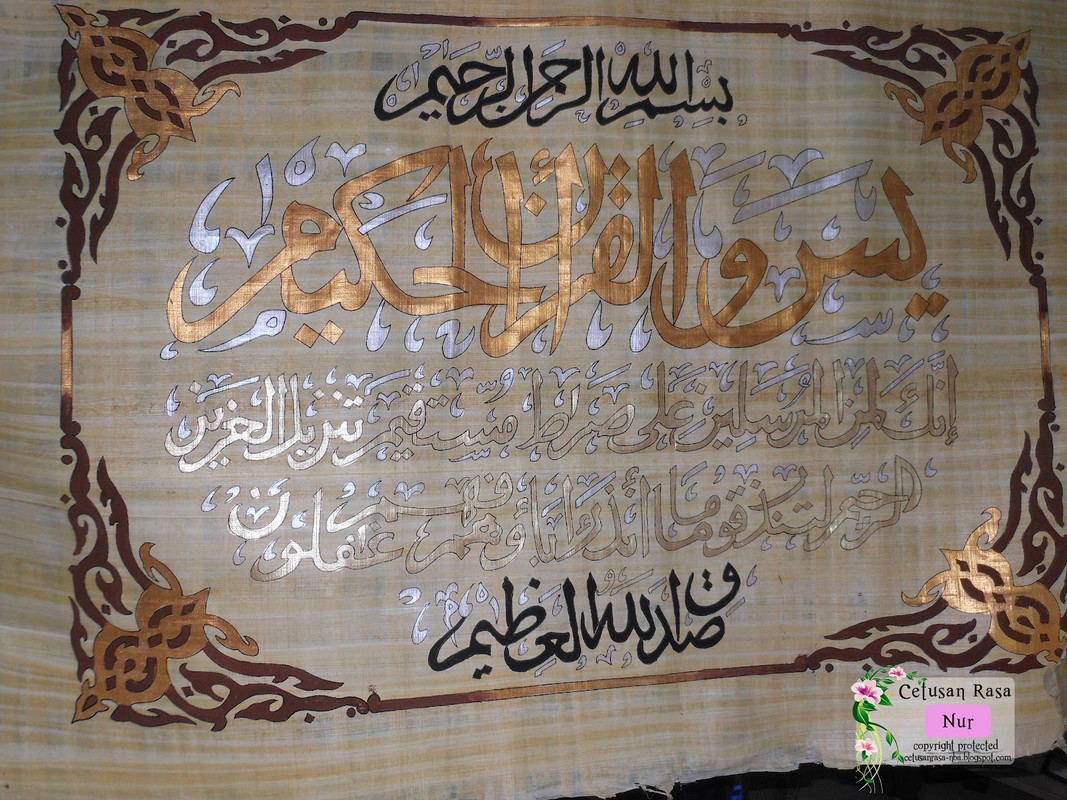 بسم الله الرحمن الرحيم
يس والقرآن الحكيم
إنك لمن المرسلين على صراط مستقيم تنزيل العزيز
الرحيم لتنذر قوما ما أنذر آباؤهم فهم غفلون
صدق الله العظيم
Cetusan Rasa
Nur
copyright protected
cetusanrasa-nba.blogspot.com